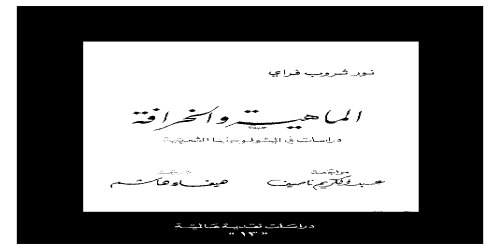 نور ثروب فراي
الماهية والخرافة
دراسات في الميثولوجيا الشعرية
مراجعة ترجمة
عبد الكريم ناصيف هيفاء هاشم
دراسات نقدية عالمية
"١٣"